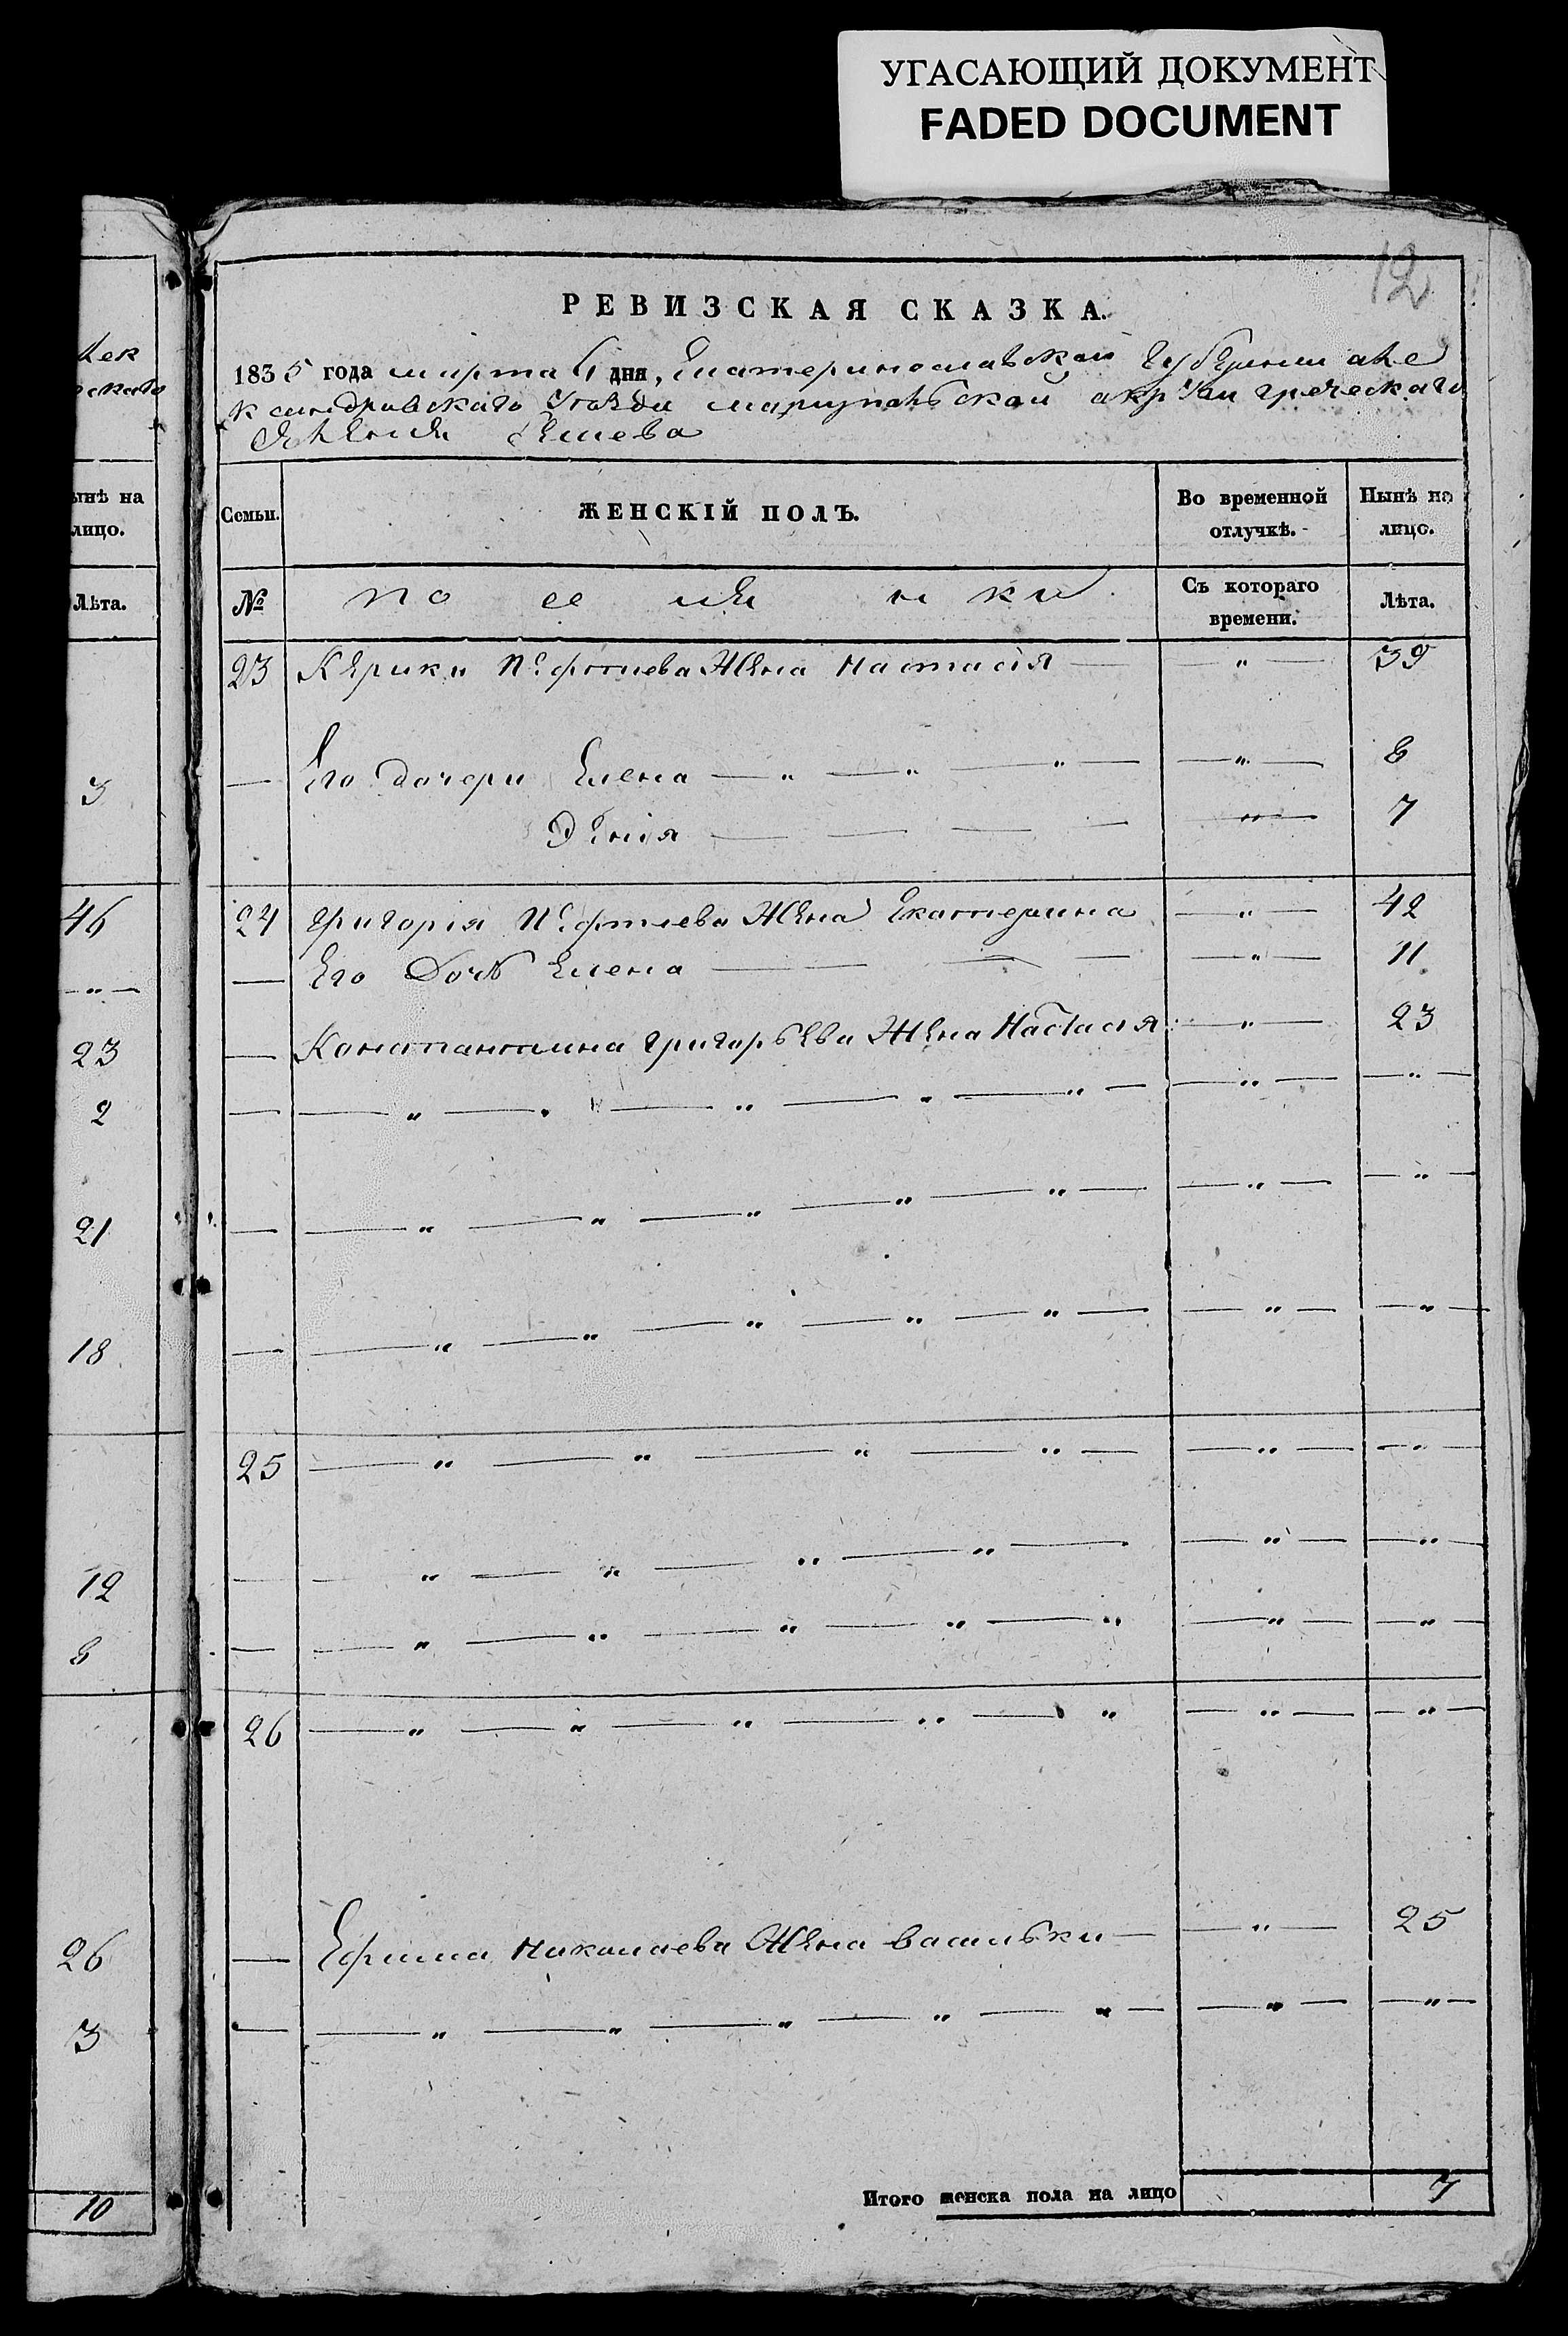 УГАСАЮЩИЙ ДОКУМЕНТ
FADED DOCUMENT
12
РЕВИЗСКАЯ СКАЗКА.
1835 года марта 6 дня, Екатеринославской Губернии але
ксандровскаго Уезда мариупольской округи греческаго
селения бешева
Семьи.
ЖЕНСКІЙ ПОЛЪ.
Во временной отлучкѣ.
Нынѣ на лицо.
№
поселянки
Съ котораго времени.
Лѣта.
23 Кѣрики Пефтиева Жена Настасія — " — 39
— Его дочери Елена — " — " — " — — " — 8
Деніа — — — — — " — 7
24 Григорія Пефтиева Жена Екатерина — " — 42
— Его Дочь Елена — — — — — " — 11
— Константина Григорьева Жена Настасія — " — 23
— — " — " — " — " — " — — " — — " —
— — " — " — " — " — " — — " — — " —
— — " — " — " — " — " — — " — — " —
25 — " — " — " — " — — " — — " —
— — " — " — " — " — — " — — " —
— — " — " — " — " — " — " — — " —
26 — " — " — " — " — " — " — — " —
— Ефима Николаева Жена васильки — — " — 25
— — " — " — " — " — " — — " — — " —
Итого женска пола на лицо 7
лек
скаго
ынѣ на
лицо.
Лѣта.
3
46
— " —
23
2
21
18
12
8
26
3
10